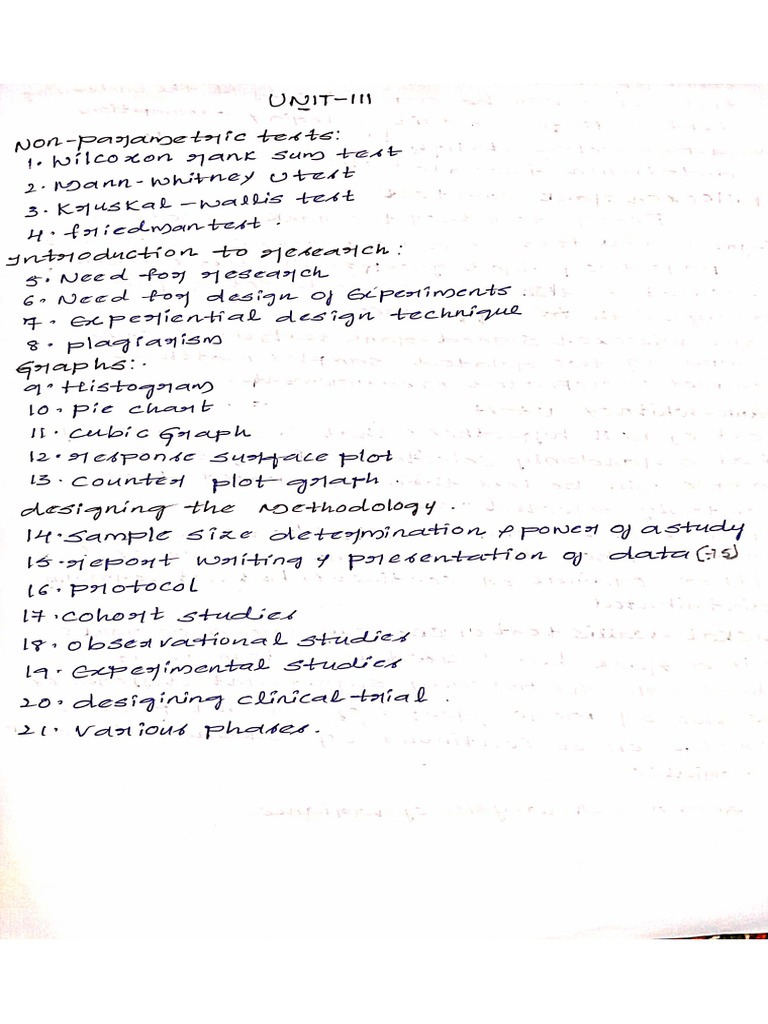 UNIT-III
Non-parametric tests:
1. Wilcoxon rank sum test
2. Mann-Whitney U test
3. Kruskal-Wallis test
4. friedman test.
Introduction to research:
5. Need for research
6. Need for design of Experiments.
7. Experiential design technique
8. plagiarism
Graphs:-
9. Histogram
10. pie chart.
11. cubic Graph
12. response surface plot
13. counter plot graph.
designing the Methodology.
14. Sample size determination & power of a study
15. report writing & presentation of data
16. protocol
17. cohort studies
18. observational studies
19. Experimental studies
20. desigining clinical-trial.
21. various phases.